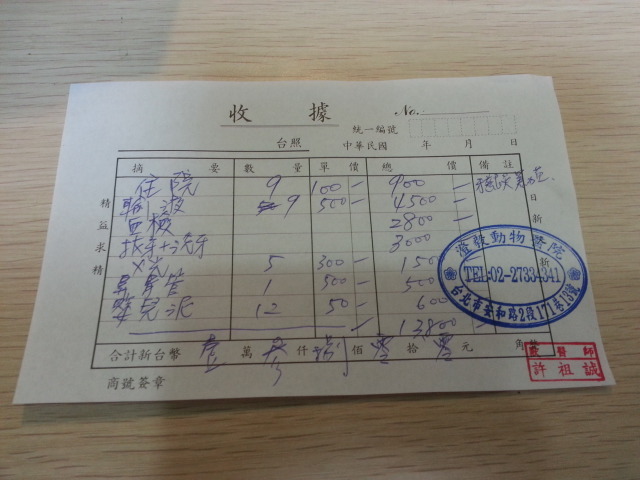 收 據
No.
統一編號
台照 中華民國 年 月 日
摘 要 數 量 單 價 總 價 備 註
住院 9 100 900
輸液 9 500 4500
血檢 2800
拔牙+洗牙 3000
X光 5 300 150
鼻胃管 1 500 500
嬰兒泥 12 50 600
13800
精益求精
日新
新
合計新台幣 壹 萬 參 仟 捌 佰 零 拾 零 元 角
商號簽章
澄發動物醫院
TEL:02-2733-4341
台北市安和路2段171巷13號
獸醫師
許祖誠